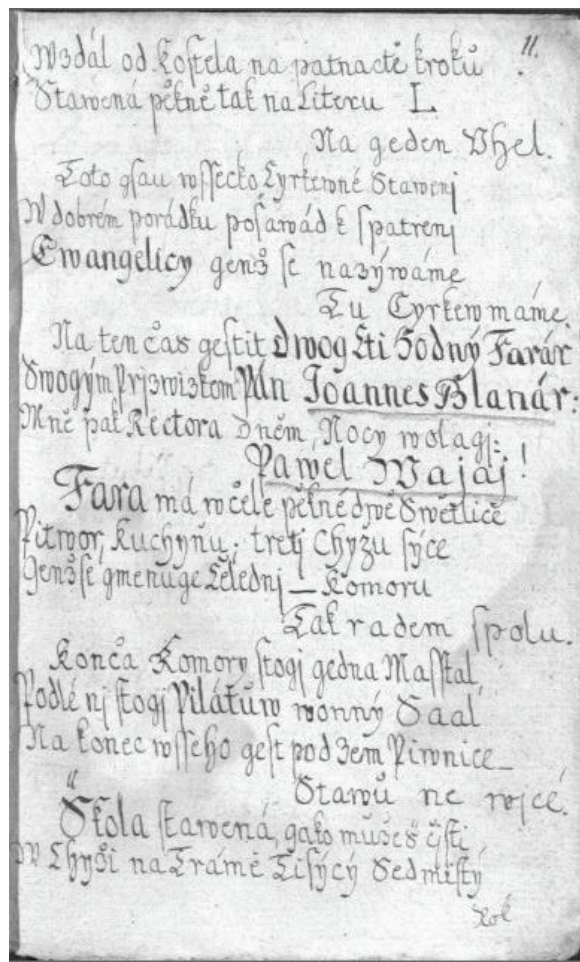 11.
Wzdál od Kostela na patnactě kroků
Stawená pěkně tak na Literu L.
Na geden Vhel.
Toto gsau wssecko Cyrkewné Stawenj
W dobrém porádku posawád k spatrenj
Ewangelicy genž se nazýwáme
Tu Cyrkew máme.
Na ten čas gestit Dwog Cti Hodný Farár
Swogým Prjzwiztem Pán Joannes Blanár:
Mně pak Rectora Dněm, Nocy wolagj:
Pawel Wajaj!
Fara má wčele pěkné dwě Swětlicě
Pitwor, Kuchyňu; tretj Chyžu sýce
Genž se gmenuge Čelednj – Komoru
Tak radem spolu.
Konča Komory stogj gedna Masstal,
Podlé nj stogj Pilátůw wonný Saal,
Na konec wsseho gest pod Zem Piwnice –
Stawů ne wjcé.
Skola stawená, gako mužeš čjsti
W Chyži na Trámě Tisýcý Sedmistý
Rok